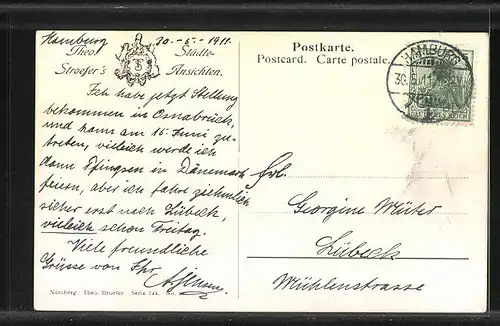 Hamburg 30.-5.-1911.
Theo. Städte-
Stroefer's Ansichten.
Postkarte.
Postcard. Carte postale.
HAMBURG
30.5.11
Ich habe jetzt Stellung
bekommen in Osnabrück,
und kann am 15. Juni zu-
treten, vieleich werde ich
dann Pfingsen in Dänemark
feiern, aber ich fahre ziehmlich
sicher erst nach Lübeck,
vieleich schon Freitag.
Viele freundliche
Grüsse von Ihr
Frl.
Georgine Müter
Lübeck
Mühlenstrasse
Nürnberg: Theo. Stroefer. Serie 744. No.